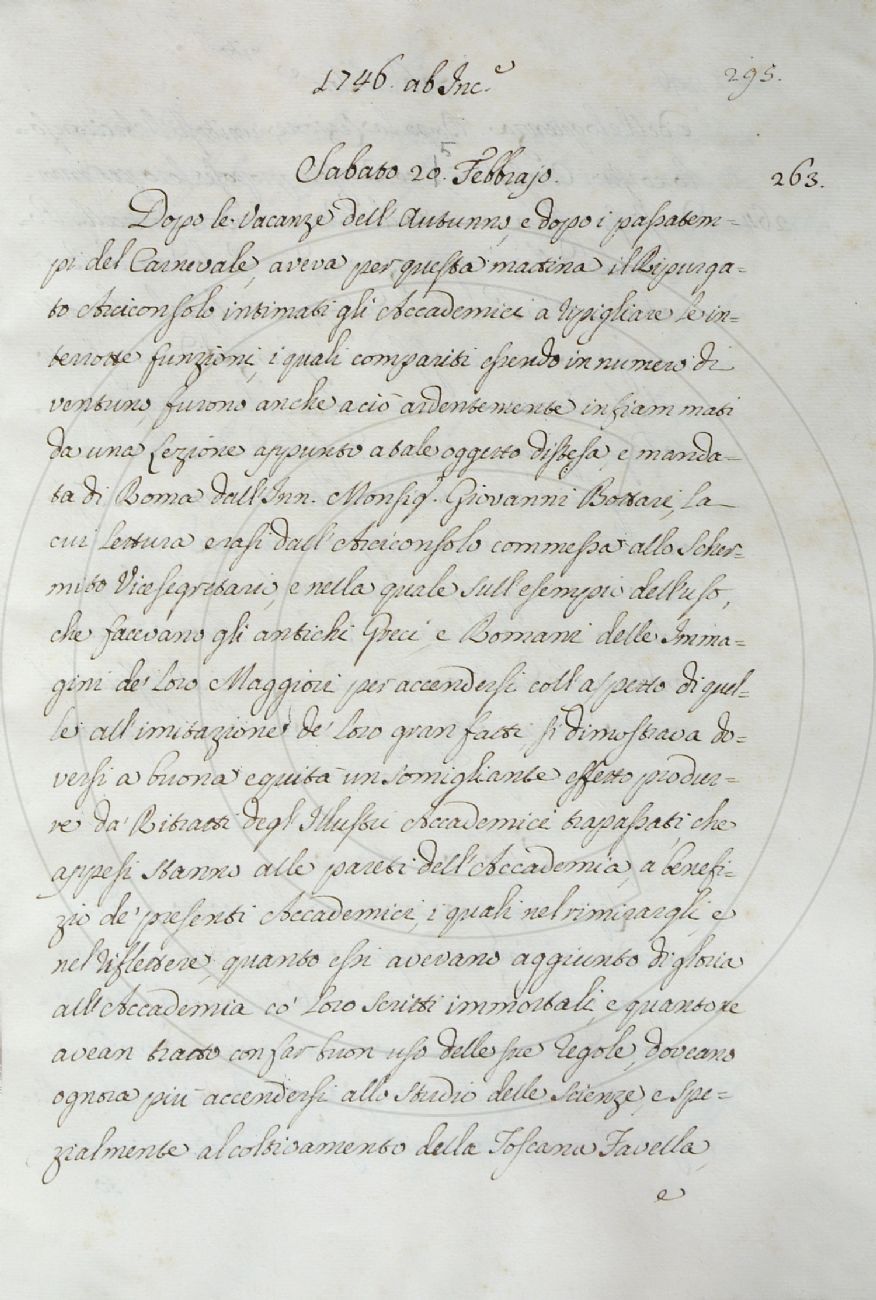 1746. ab Inc.e
295.
Sabato 20. Febbrajo.
5
263.
Dopo le Vacanze dell'Autunno, e dopo i passatem=
pi del Carnevale, aveva per questa mattina il Ripurga=
to Arciconsolo intimati gli Accademici a ripigliare le in=
terrotte funzioni, i quali compariti essendo in numero di
ventuno, furono anche a ciò ardentemente infiammati
da una Lezione appunto a tale oggetto distesa, e manda=
ta di Roma dall'Inn. Monsig.r Giovanni Bottari, la
cui lettura erasi dall'Arciconsolo commessa allo Scher=
mito Vicesegretario, e nella quale sull'esempio dell'uso,
che facevano gli antichi Greci, e Romani delle Imma=
gini de' loro Maggiori per accendersi coll'aspetto di quel=
le all'imitazione de' loro gran fatti, si dimostrava do=
versi a buona equità un somigliante effetto produr=
re da' Ritratti degl'Illustri Accademici trapassati che
appesi stanno alle pareti dell'Accademia, a benefi=
zio de' presenti Accademici, i quali nel rimirargli, e
nel riflettere, quanto essi avevano aggiunto di gloria
all'Accademia co' loro scritti immortali, e quanto ne
avean tratto con far buon uso delle sue regole, doveano
ognora più accendersi allo studio delle scienze, e spe=
zialmente al coltivamento della Toscana Favella,
e